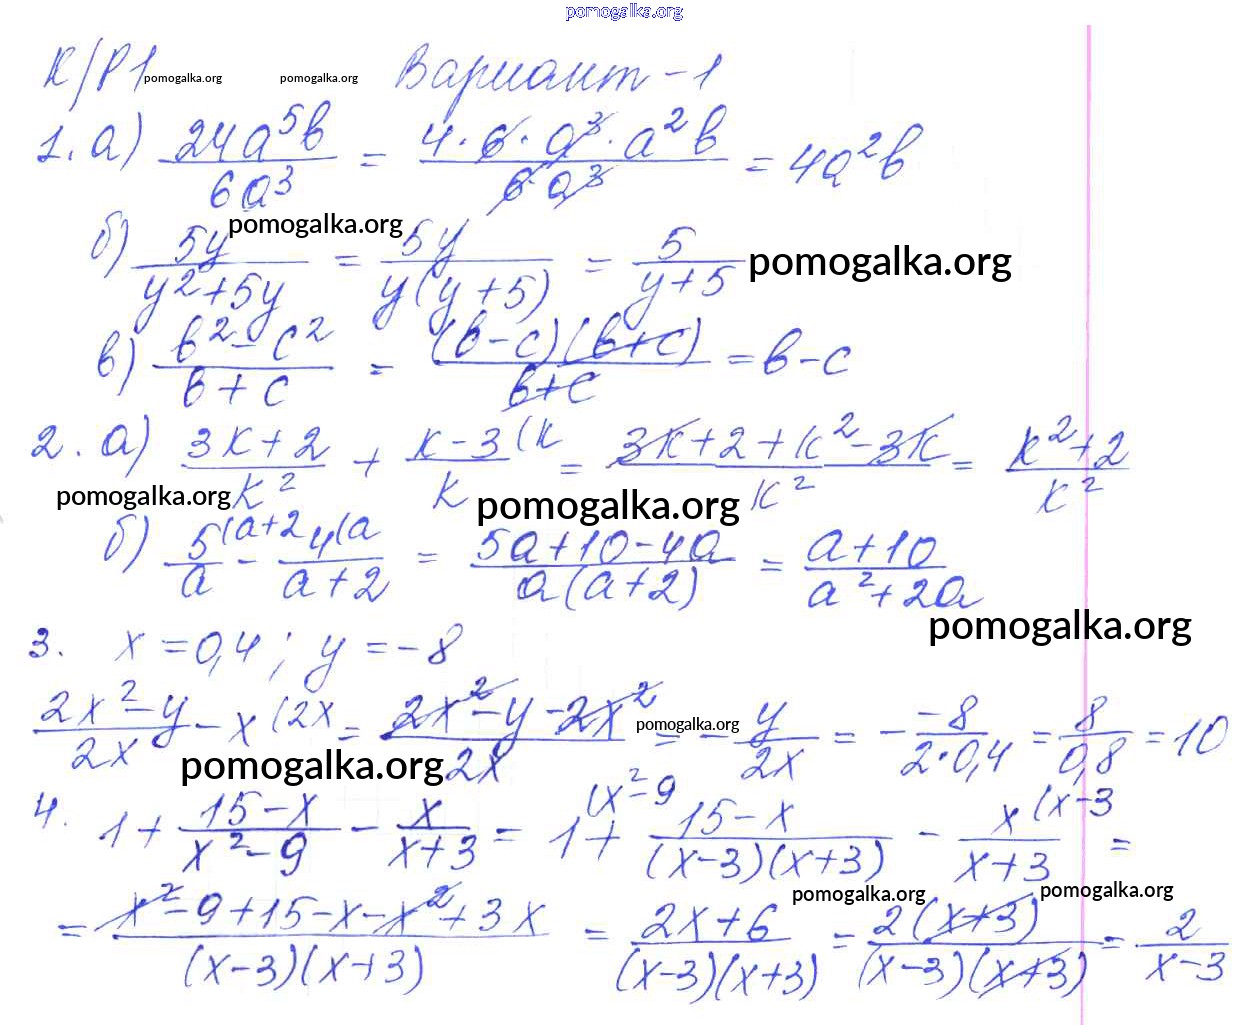 pomogalka.org
К/Р1 pomogalka.org pomogalka.org Вариант -1
1. а) 24a⁵b / 6a³ = 4·6·a³·a²b / 6·a³ = 4a²b
pomogalka.org
б) 5y / y²+5y = 5y / y(y+5) = 5 / y+5 pomogalka.org
в) b²-c² / b+c = (b-c)(b+c) / b+c = b-c
2. а) 3k+2 / k² + k-3(k / k = 3k+2+k²-3k / k² = k²+2 / k²
pomogalka.org pomogalka.org
б) 5(a+2 / a - 4(a / a+2 = 5a+10-4a / a(a+2) = a+10 / a²+2a
pomogalka.org
3. x=0,4; y=-8
2x²-y / 2x - x(2x = 2x²-y-2x² / 2x = - y / 2x = - -8 / 2·0,4 = 8 / 0,8 = 10
pomogalka.org pomogalka.org
4. 1+ 15-x / x²-9 - x / x+3 = 1(x²-9 + 15-x / (x-3)(x+3) - x(x-3 / x+3 =
pomogalka.org pomogalka.org
= x²-9+15-x-x²+3x / (x-3)(x+3) = 2x+6 / (x-3)(x+3) = 2(x+3) / (x-3)(x+3) = 2 / x-3